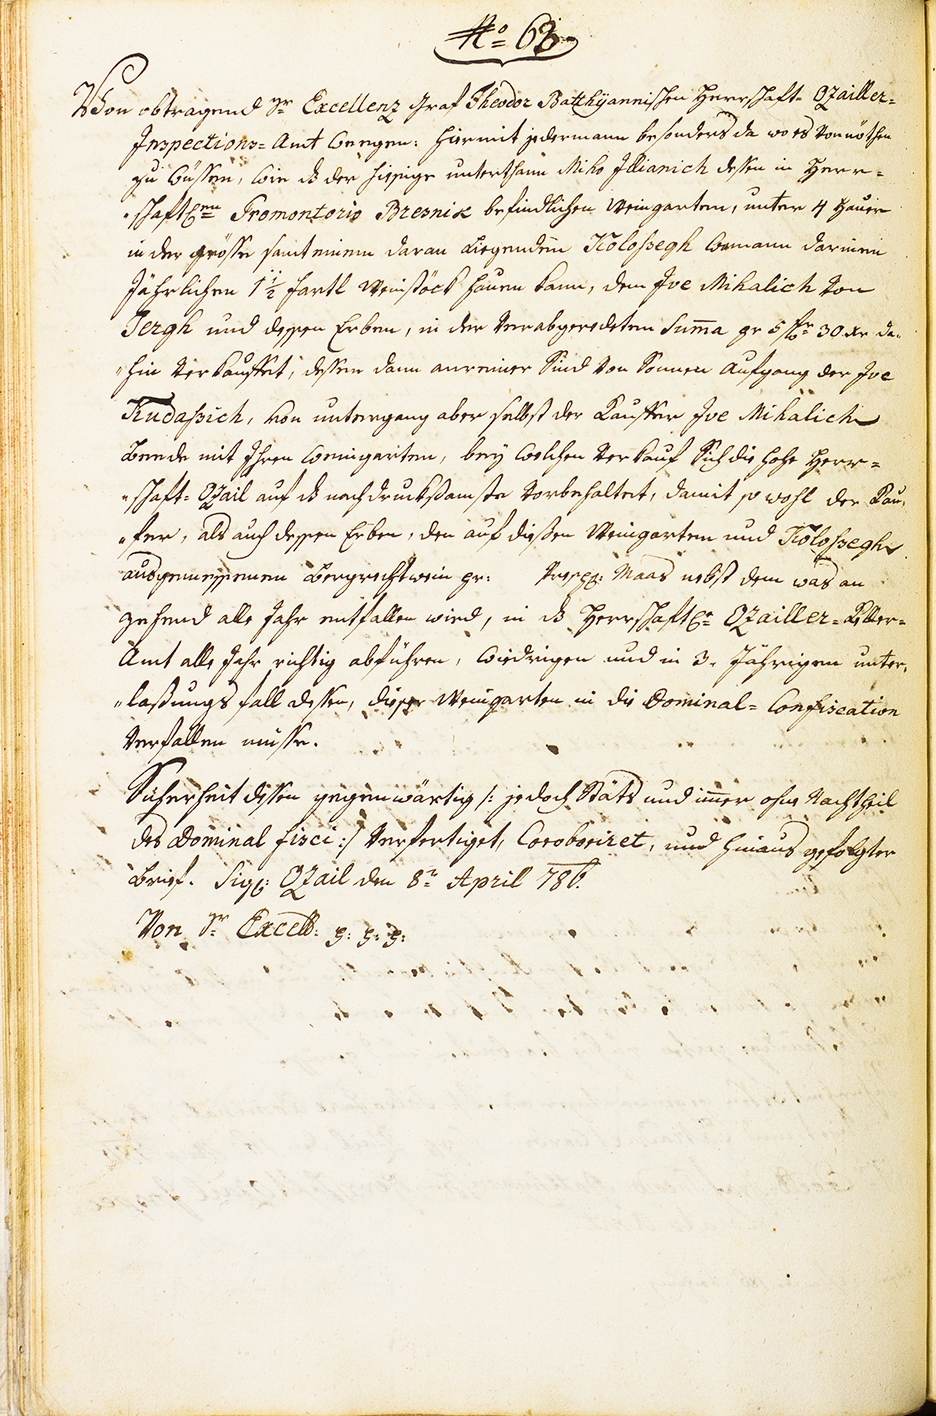 No 63
Von obtragend Sr Excellenz Graf Theodor Batthÿannischen Herrschaft= Ozailler=
Inspections=Amt wegen: hiermit jedermann besonders da wo es Vonnöthen
zu wissen, wie dß der hiesige unterthann Miko Illianich dessen in Herr=
schaftlichen Promontorio Bresnik befindlichen Weingarten, unter 4 Hauer
in der grösse samt einem daran liegenden Koloßegh wo mann darinen
Jährlichen 1 1/2 fartl Weinstöck hauen kann, dem Ive Mihalich Von
Jergh und dessen Erben, in der Verabgeredeten Suma pr 5 fr 30 xr da=
hin Verkauffet; dessen dann anreiner Sind Von Sonnen Aufgang der Ive
Kudaßich, Von untergang aber selbst der Kauffer Ive Mihalich
beede mit Ihren weingarten, bey welchen Verkauf Sich die hohe Herr=
schaft= Ozail auf dß nachdrucksamste Vorbehaltet, damit so wohl der Kau=
fer, als auch dessen Erben, den auf diesen Weingarten und Koloßegh
ausgemessenen bergrechtwein pr: Maas nebst dem was an
zehend alle Jahr entfallen wird, in dß Herrschaftl Ozailler=Keller=
Amt alle Jahr richtig abführen, wiedrigen und in 3. Jährigen unter=
lassungs fall dessen, dieser Weingarten in die Dominal= Confiscation
Verfallen müsse.
Sicherheit dessen gegenwärtig /: jedoch Stäts und immer ohne Nachtheil
des Dominal fisci :/ Verfertiget, Coroboriret, und hinaus gefolgter
brief. Sig: Ozail den 8n April 786.
Von Sr Excell: